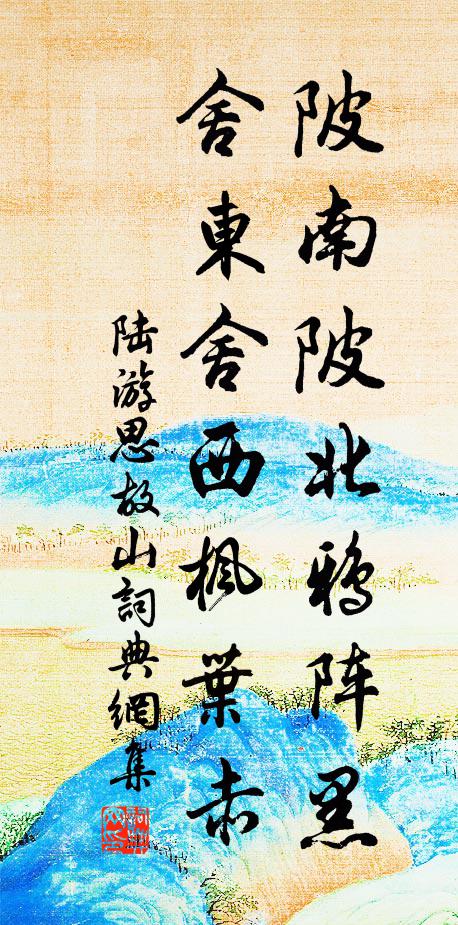 陂南陂北鸦阵黑
舍東舍西楓葉赤
陆游思故山詞典網集